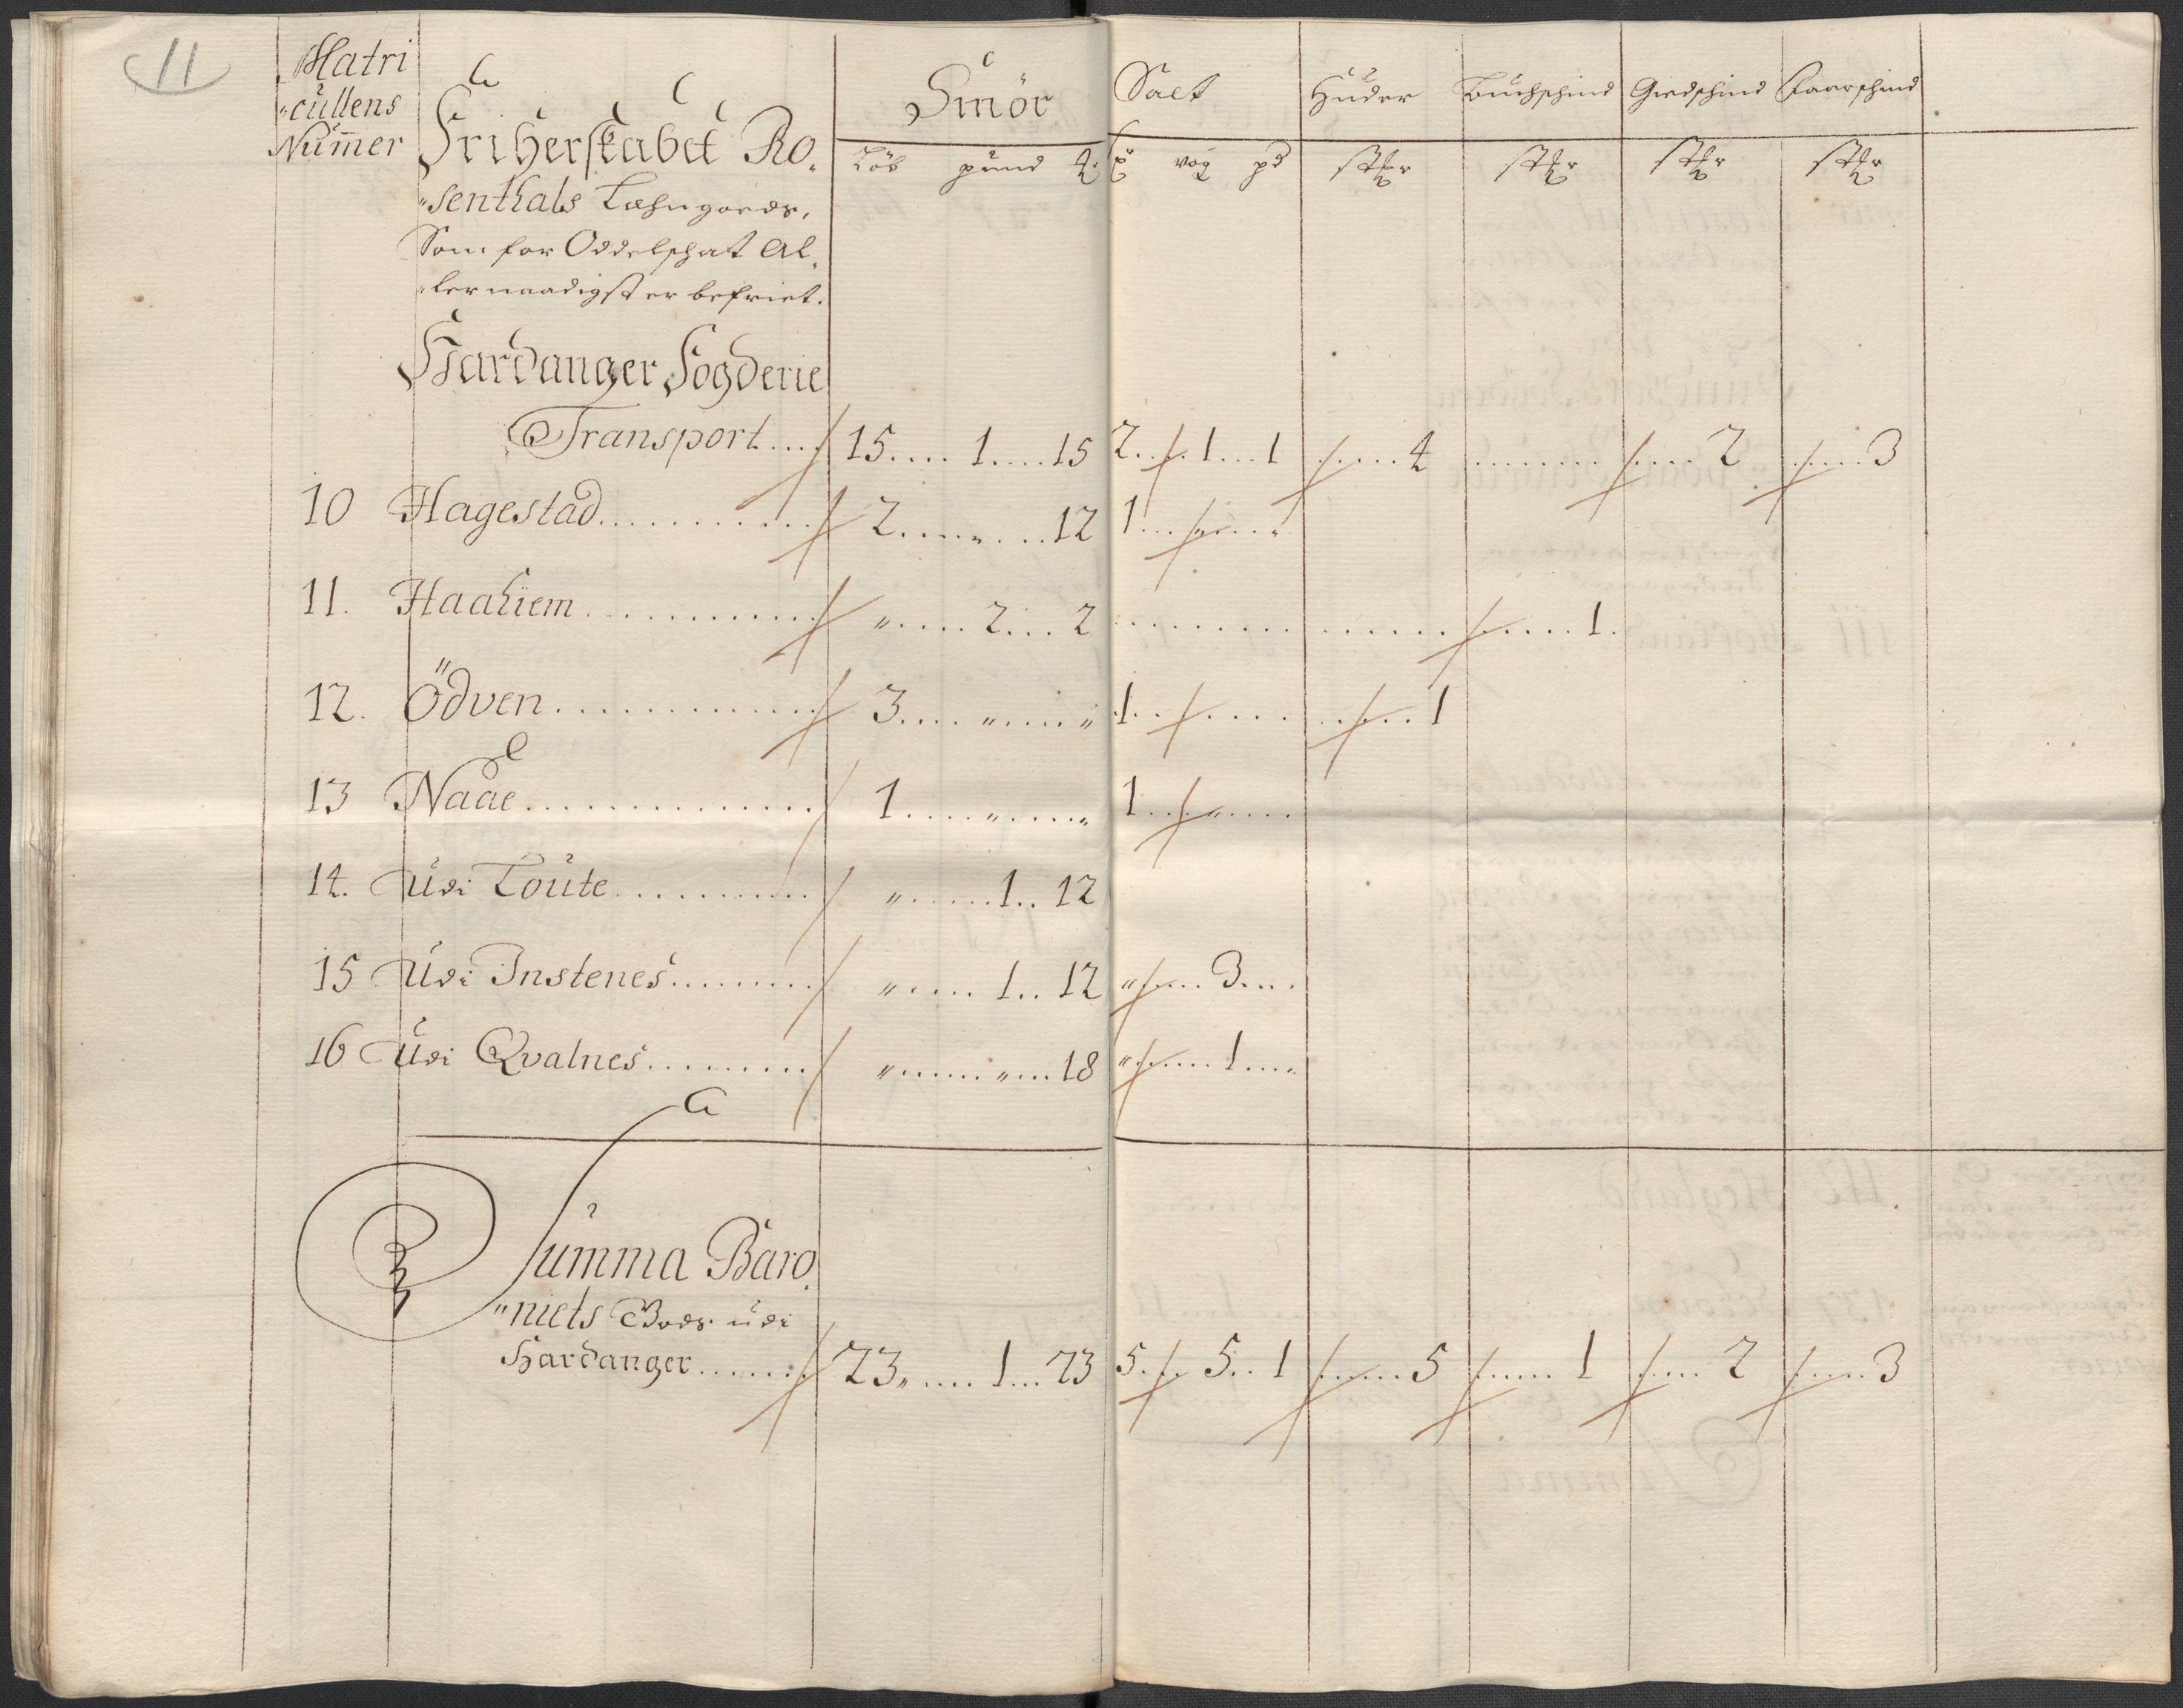 11
Matri
"cullens
Nummer
Friherskabet Ro,
"senthals Læhngoeds,
Som for Oddelschat Al,
"lernaadigst er befriet.
Smör Salt Huder Buchschind Giedschind Faarschind
Löb pund vog pd
Hardanger Fogderie
Transport.... 15.... 1....15 2....1...1 .....4 ....... ....2 ....3
10 Hagestad........... 2....."....12 1...."...."
11. Haahiem............ "....2...2 ................ .....1.
12. Ödven............ 3...."....." 1......... ....1
13 Naae.............. 1....."....." 1...."....
14. Udi Loute.......... "......1..12
15 Udi Instenes........ "....1..12 "....3...
16 Udi Qvalnes......... "......"...18 ".....1...."
Summa Baro,
"niets Gods udi
Hardanger...... 23,....1...23 5...5..1 .....5 ....1 ....2 ....3